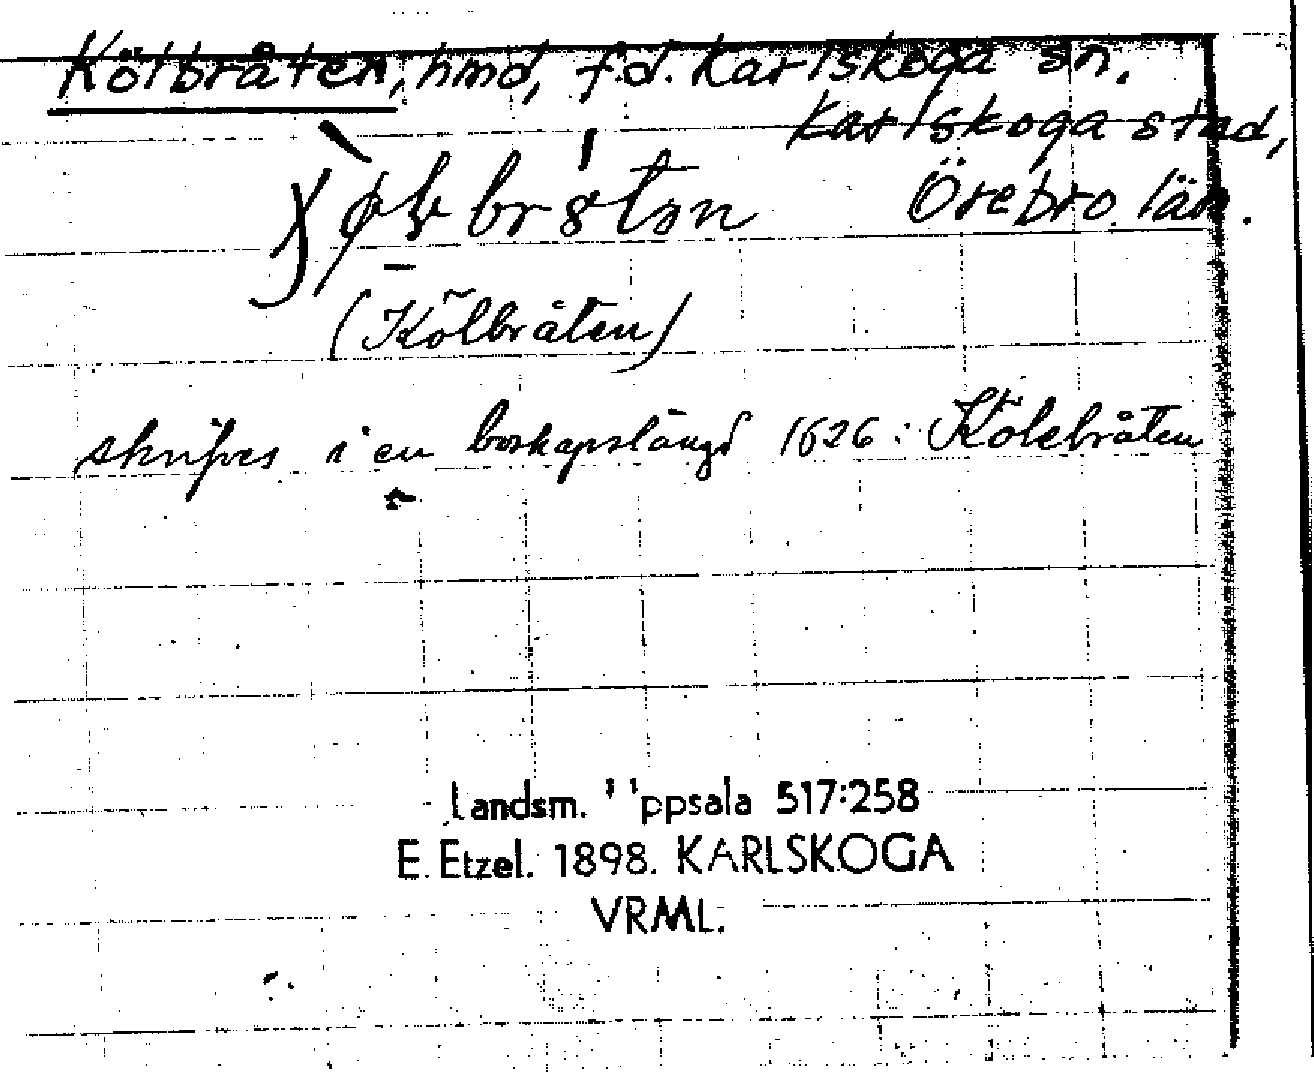 Kölbråten, hmd, f.d. Karlskoga sn.
Karlskoga stad,
Örebro län.
(Kölbråten)
skrifves i en boskapslängd 1626: Kölebråten
Landsm. Uppsala 517:258
E. Etzel. 1898. KARLSKOGA
VRML.